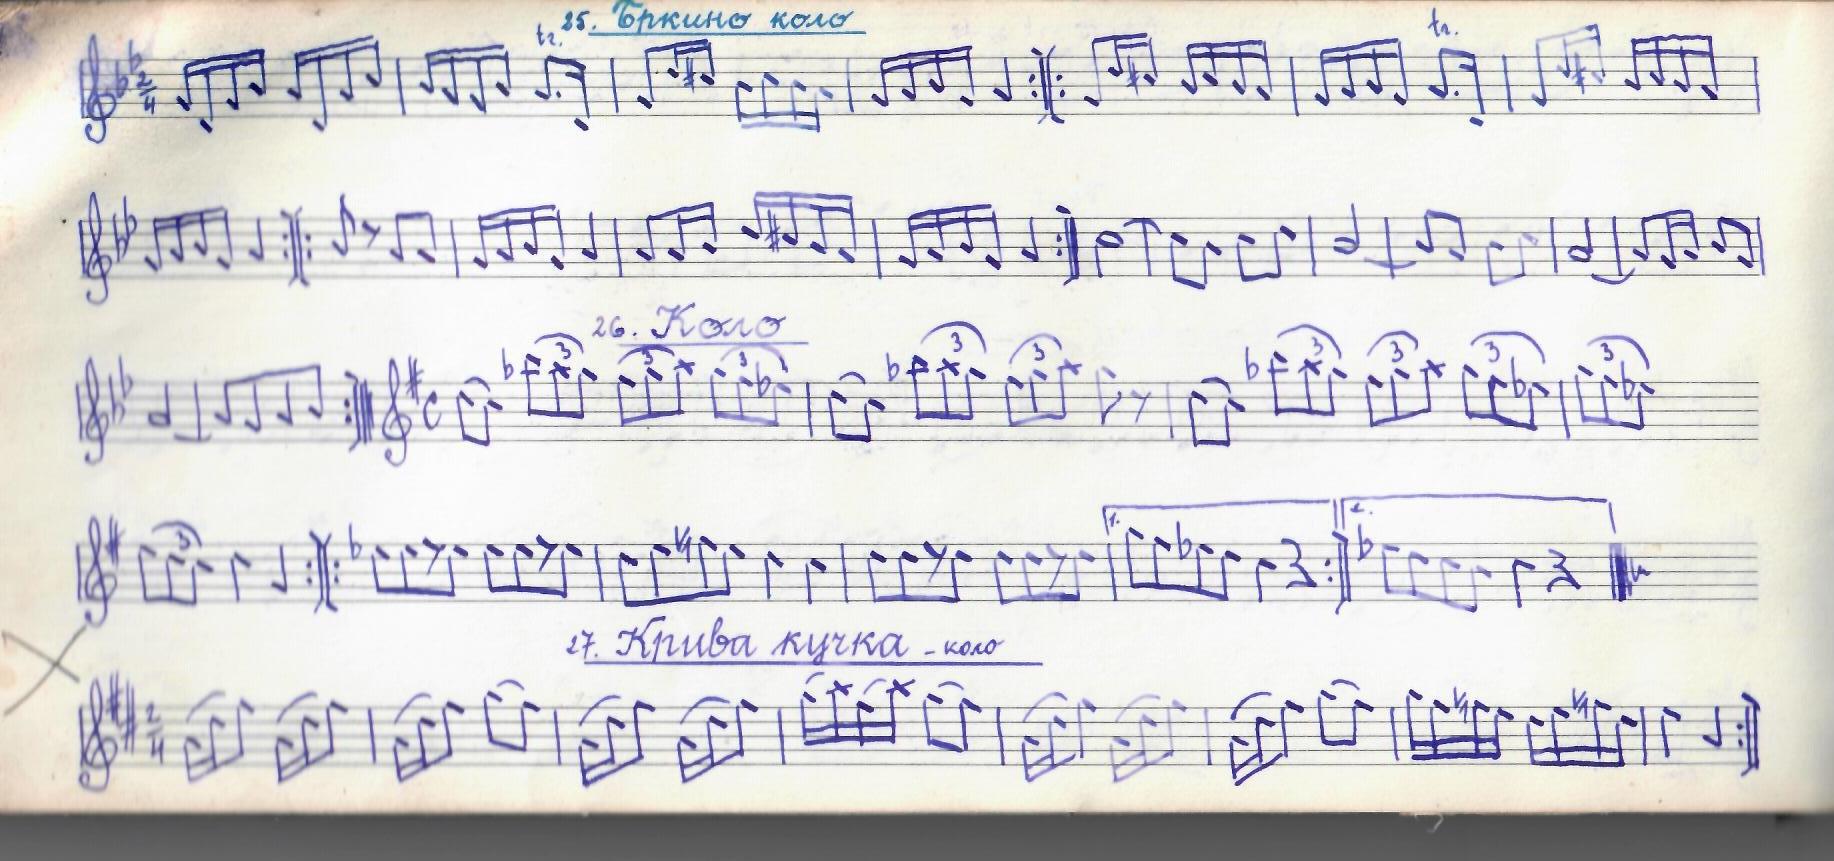 25. Бркино коло
tr.
tr.
26. Коло
3 3 3 3 3 3 3 3 3
3
1. 2.
27. Крива кучка - коло